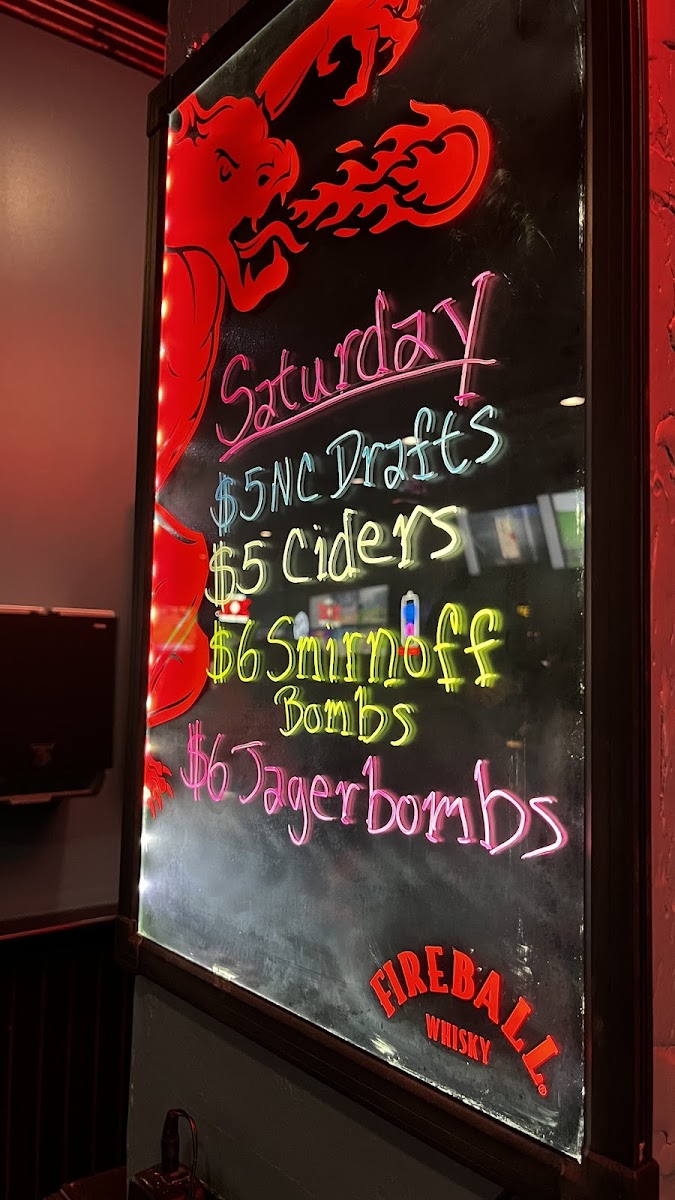 Saturday
$5 NC Drafts
$5 Ciders
$6 Smirnoff
Bombs
$6 Jagerbombs
FIREBALL
WHISKY